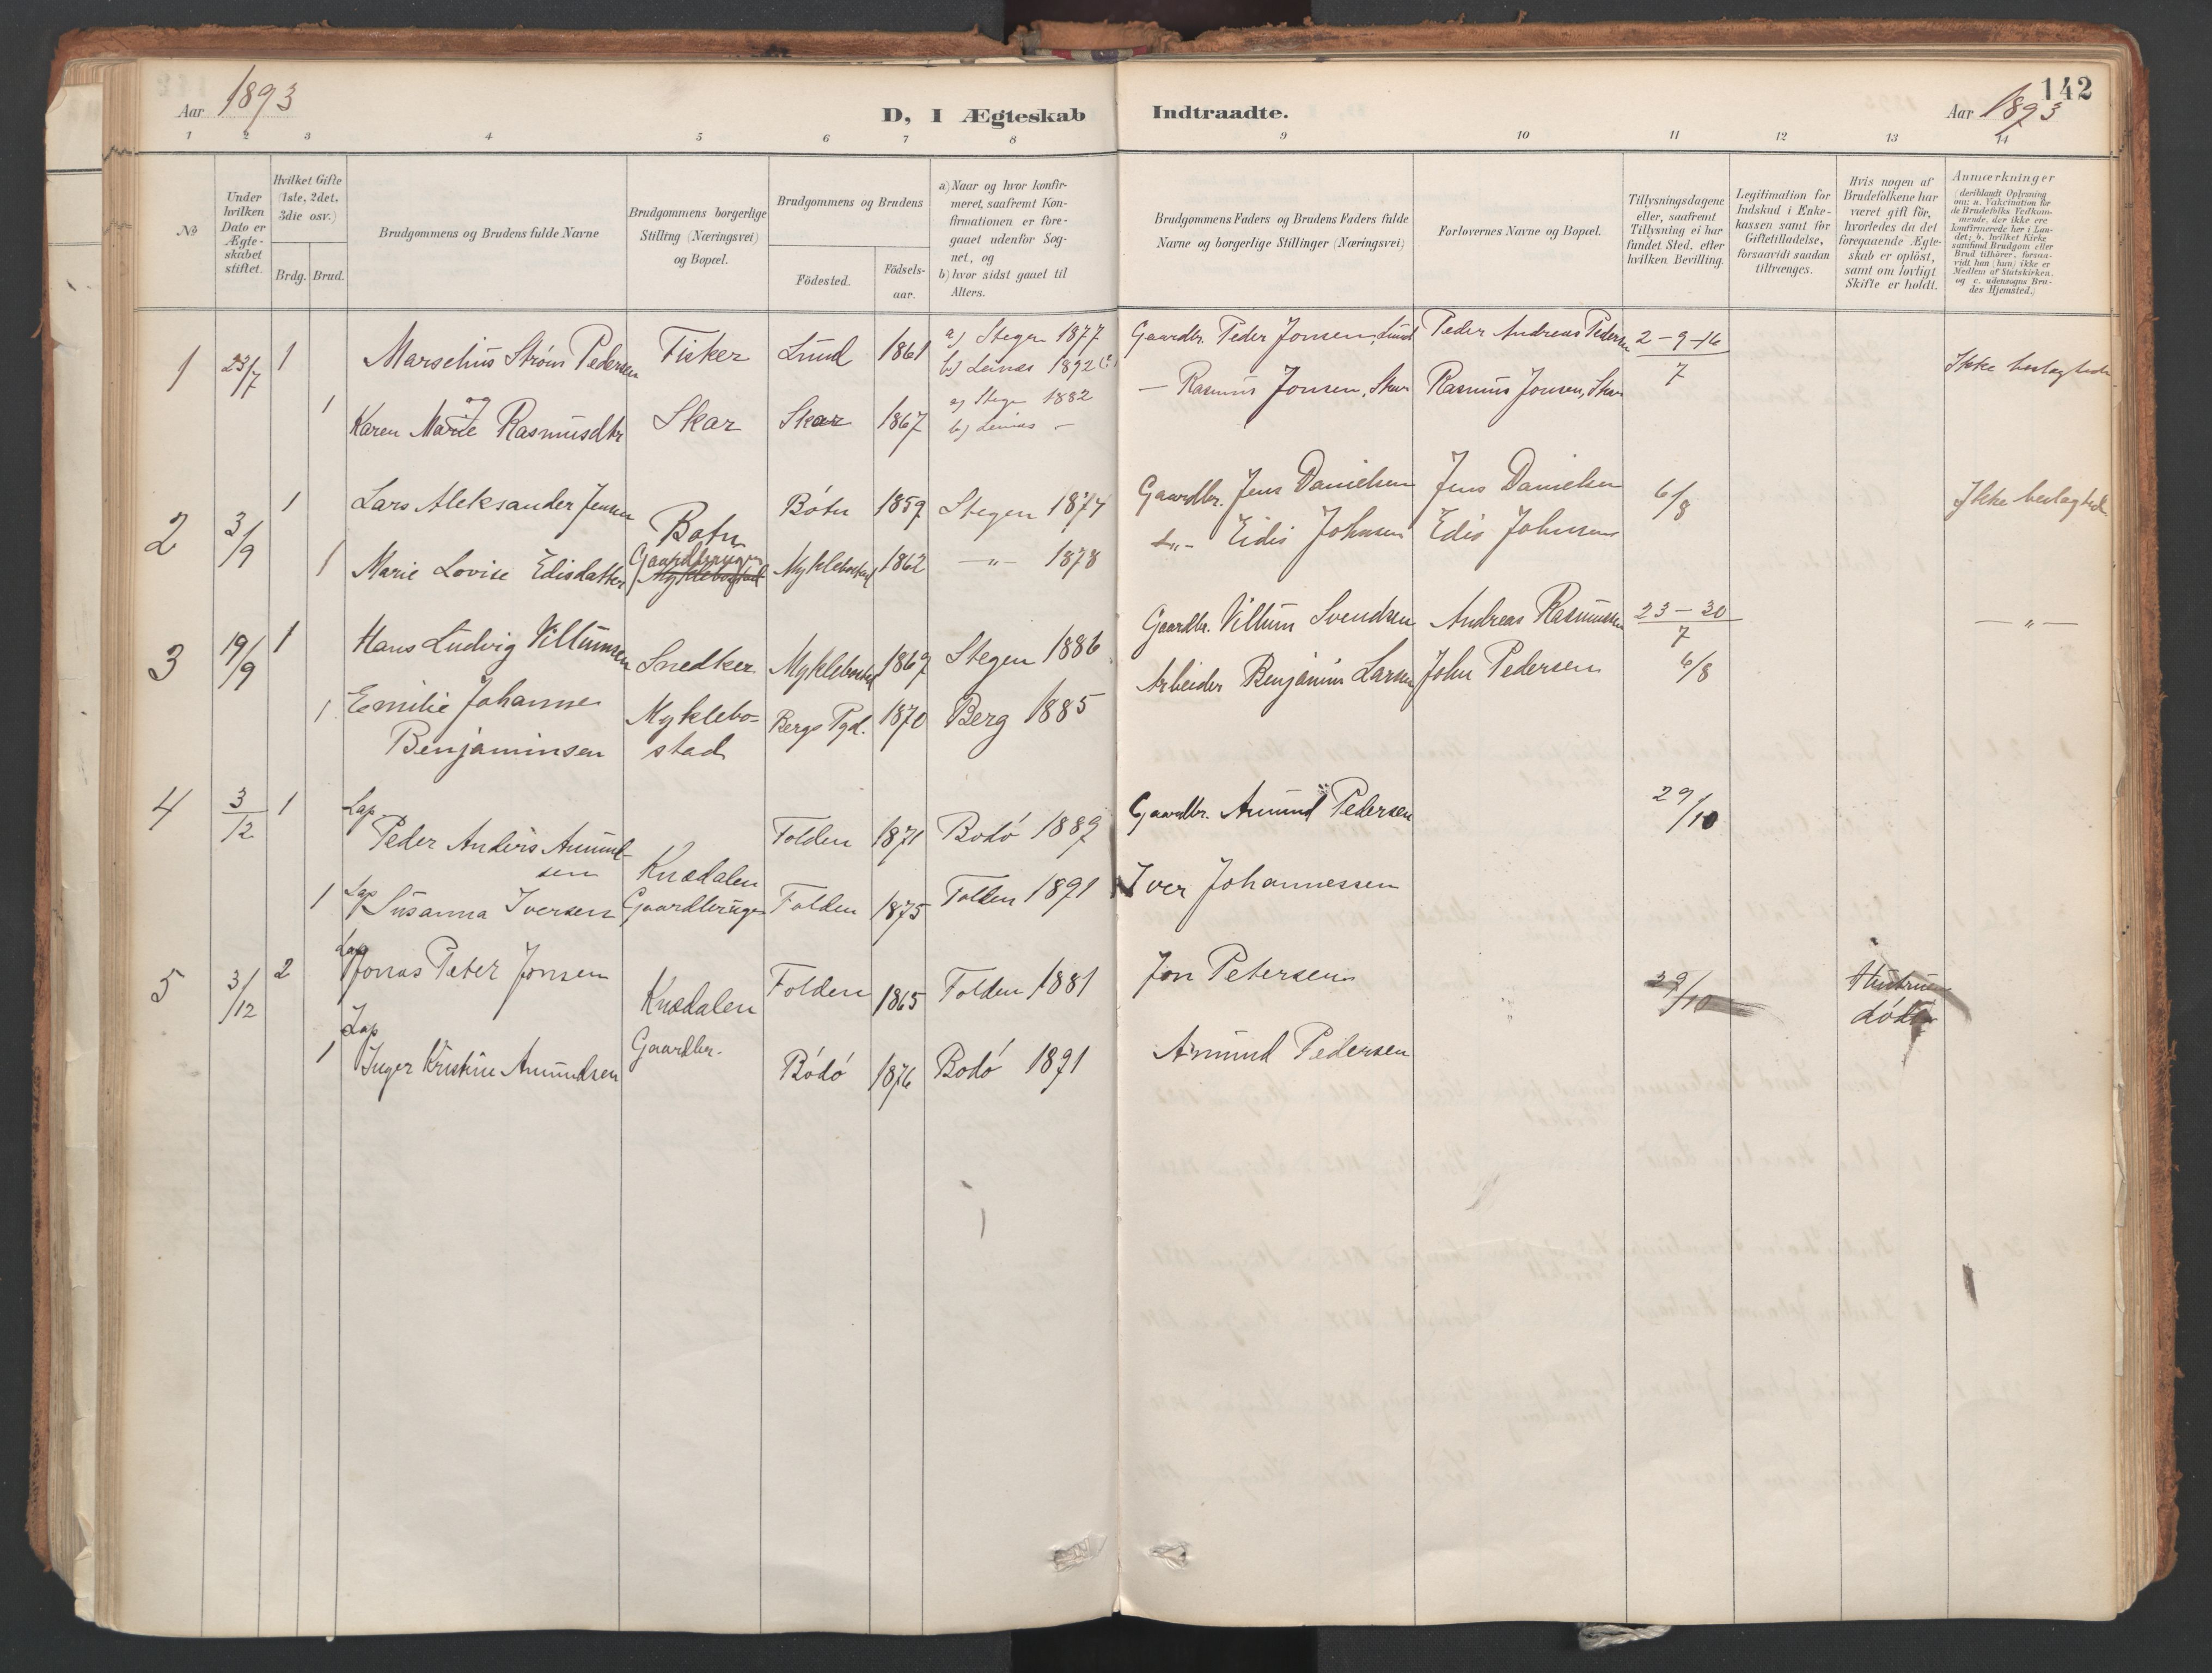 Aar 1893
D, I Ægteskab Indtraadte.
142
Aar 1893
1 2 3 4 5 6 7 8 9 10 11 12 13 14
No
Under hvilken Dato er Ægteskabet stiftet.
Hvilket Gifte (1ste, 2det, 3die osv.)
Brdg. Brud.
Brudgommens og Brudens fulde Navne
Brudgommens borgerlige Stilling (Næringsvei) og Bopæl.
Brudgommens og Brudens
Födested.
Födsels-aar.
a) Naar og hvor konfirmeret, saafremt Konfirmationen er foregaaet udenfor Sognet, og
b) hvor sidst gaaet til Alters.
Brudgommens Faders og Brudens Faders fulde Navne og borgerlige Stillinger (Næringsvei)
Forlovernes Navne og Bopæl.
Tillysningsdagene eller, saafremt Tillysning ei har fundet Sted, efter hvilken Bevilling.
Legitimation for Indskud i Enkekassen samt for Giftetilladelse, forsaavidt saadan tiltrænges.
Hvis nogen af Brudefolkene har været gift för, hvorledes da det foregaaende Ægteskab er oplöst, samt om lovligt Skifte er holdt.
Anmærkninger
(deriblandt Oplysning om: a. Vakcination for de Brudefolks Vedkommende, der ikke ere konfirmerede her i Landet; b. hvilket Kirkesamfund Brudgom eller Brud tilhører, forsaavidt han (hun) ikke er Medlem af Statskirken, og c. udensogns Brudes Hjemsted.)
1 23/7 1 Marselius Strøm Pedersen Fisker Lund 1861 a) Stegen 1877 b) Leines 1892 Gaardbr. Peder Jonsen, Lund Peder Andreas Pedersen 2-9-16/7 Ikke beslægtede
og
1 Karen Marie Rasmusdtr Skar Skar 1867 a) Stegen 1882 b) Leines - — Rasmus Jonsen, Skar Rasmus Jonsen, Skar
2 3/9 1 Lars Aleksander Jensen Botn Bótn 1859 Stegen 1874 Gaardbr. Jens Danielsen Jens Danielsen 6/8 Ikke beslægted.
Gaardbruger
1 Marie Lovise Edisdatter Myklebostad Myklebostad 1862 —"— 1878 Eidis Johnsen Edis Johnsen
3 19/9 1 Hans Ludvig Villumsen Snedker Myklebostad 1869 Stegen 1886 Gaardbr. Villum Svendsen Andreas Rasmussen 23-30/7 —"—
1 Emilie Johanne Benjaminsen Myklebo=stad Bergs Pgd. 1870 Berg 1885 Arbeider Benjamin Larsen John Pedersen 6/8
4 3/12 1 Lap Peder Anders Amundsen Knædalen Folden 1871 Bodó 1889 Gaardbr. Amund Pedersen 29/10
1 Lap Susanna Iversen Gaardbruger Folden 1875 Folden 1891 Iver Johannessen
5 3/12 2 Lap Jonas Peter Jonsen Knædalen Folden 1865 Folden 1881 Jon Petersen 29/10 Hustruen dód
1 Lap Inger Kristine Amundsen Gaardbr. Bódó 1876 Bodó 1891 Amund Pedersen